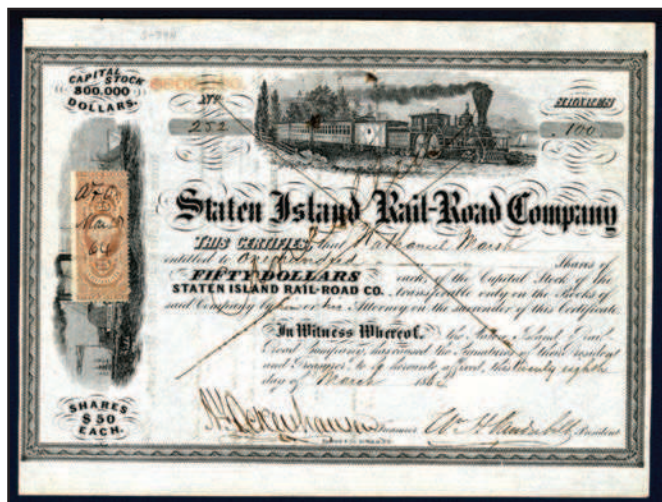 CAPITAL STOCK
800.000
DOLLARS.
No.
252
SHARES
100
Staten Island Rail-Road Company
THIS CERTIFIES, that Nathaniel Marsh
entitled to One hundred Shares of
FIFTY DOLLARS each, of the Capital Stock of the
STATEN ISLAND RAIL-ROAD CO. transferable only on the Books of
said Company by him or his Attorney on the surrender of this Certificate.
In Witness Whereof, the Staten Island Rail
Road Company, has caused the Signatures of their President
and Treasurer, to be hereunto affixed, this twenty eighth
day of March 1864
Mar
64
SHARES
$50
EACH.
Treasurer
Wm H Vanderbilt President